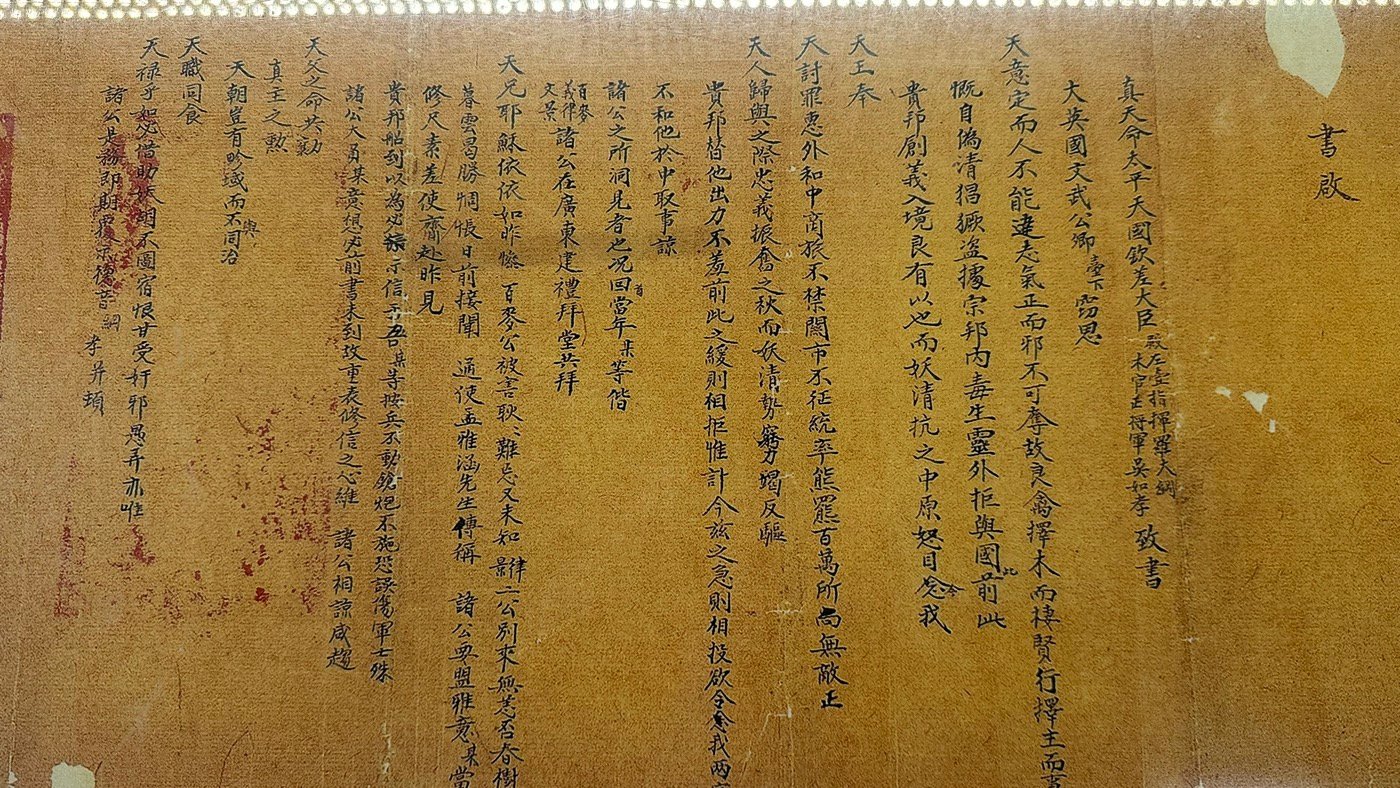 書啟
真天命太平天國欽差大臣殿左壹指揮羅大綱木官正將軍吳如孝致書
大英國文武公卿臺下窃思
天意定而人不能違志氣正而邪不可奪故良禽擇木而棲賢行擇主而事
慨自偽清猖獗盗據宗邦内毒生靈外拒與國前此
貴邦創義入境良有以也而妖清抗之中原怒目今我
天王奉
天討罪惠外和中商旅不禁關市不征統率熊羆百萬所向無敵正
天人歸與之際忠義振奮之秋而妖清勢窮力竭反驅
貴邦替他出力不羞前此之緩則相拒惟計今兹之急則相投欲令我两
不和他於中取事諒
諸公之所洞見者也况回首當年某等偕
百麥義律文景諸公在廣東建禮拜堂共拜
天兄耶穌依依如昨 百麥公被害耿耿難忘又未知律景二公别來無恙否春樹
暮雲曷勝惆悵日前接閱 通使孟雅涵先生傳稱 諸公要盟雅意某當
修尺素差使齎赴昨見
貴邦船到以為必 示信于吾某等按兵不動鎗炮不施恐誤傷軍士殊
諸公大員某意想必前書未到故重表修信之心維 諸公相諒咸趨
天父之命共勷
真主之勲
天朝豈有畛域而不同治
天職同食
天禄乎如必借助 不圖宿恨甘受奸邪愚弄亦唯
諸公是務即期覆示 綱 孝 頓